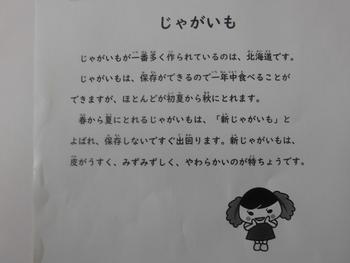 じゃがいも
じゃがいもが一番多く作られているのは、北海道です。
じゃがいもは、保存ができるので一年中食べることが
できますが、ほとんどが初夏から秋にとれます。
春から夏にとれるじゃがいもは、「新じゃがいも」と
よばれ、保存しないですぐ出回ります。新じゃがいもは、
皮がうすく、みずみずしく、やわらかいのが特ちょうです。